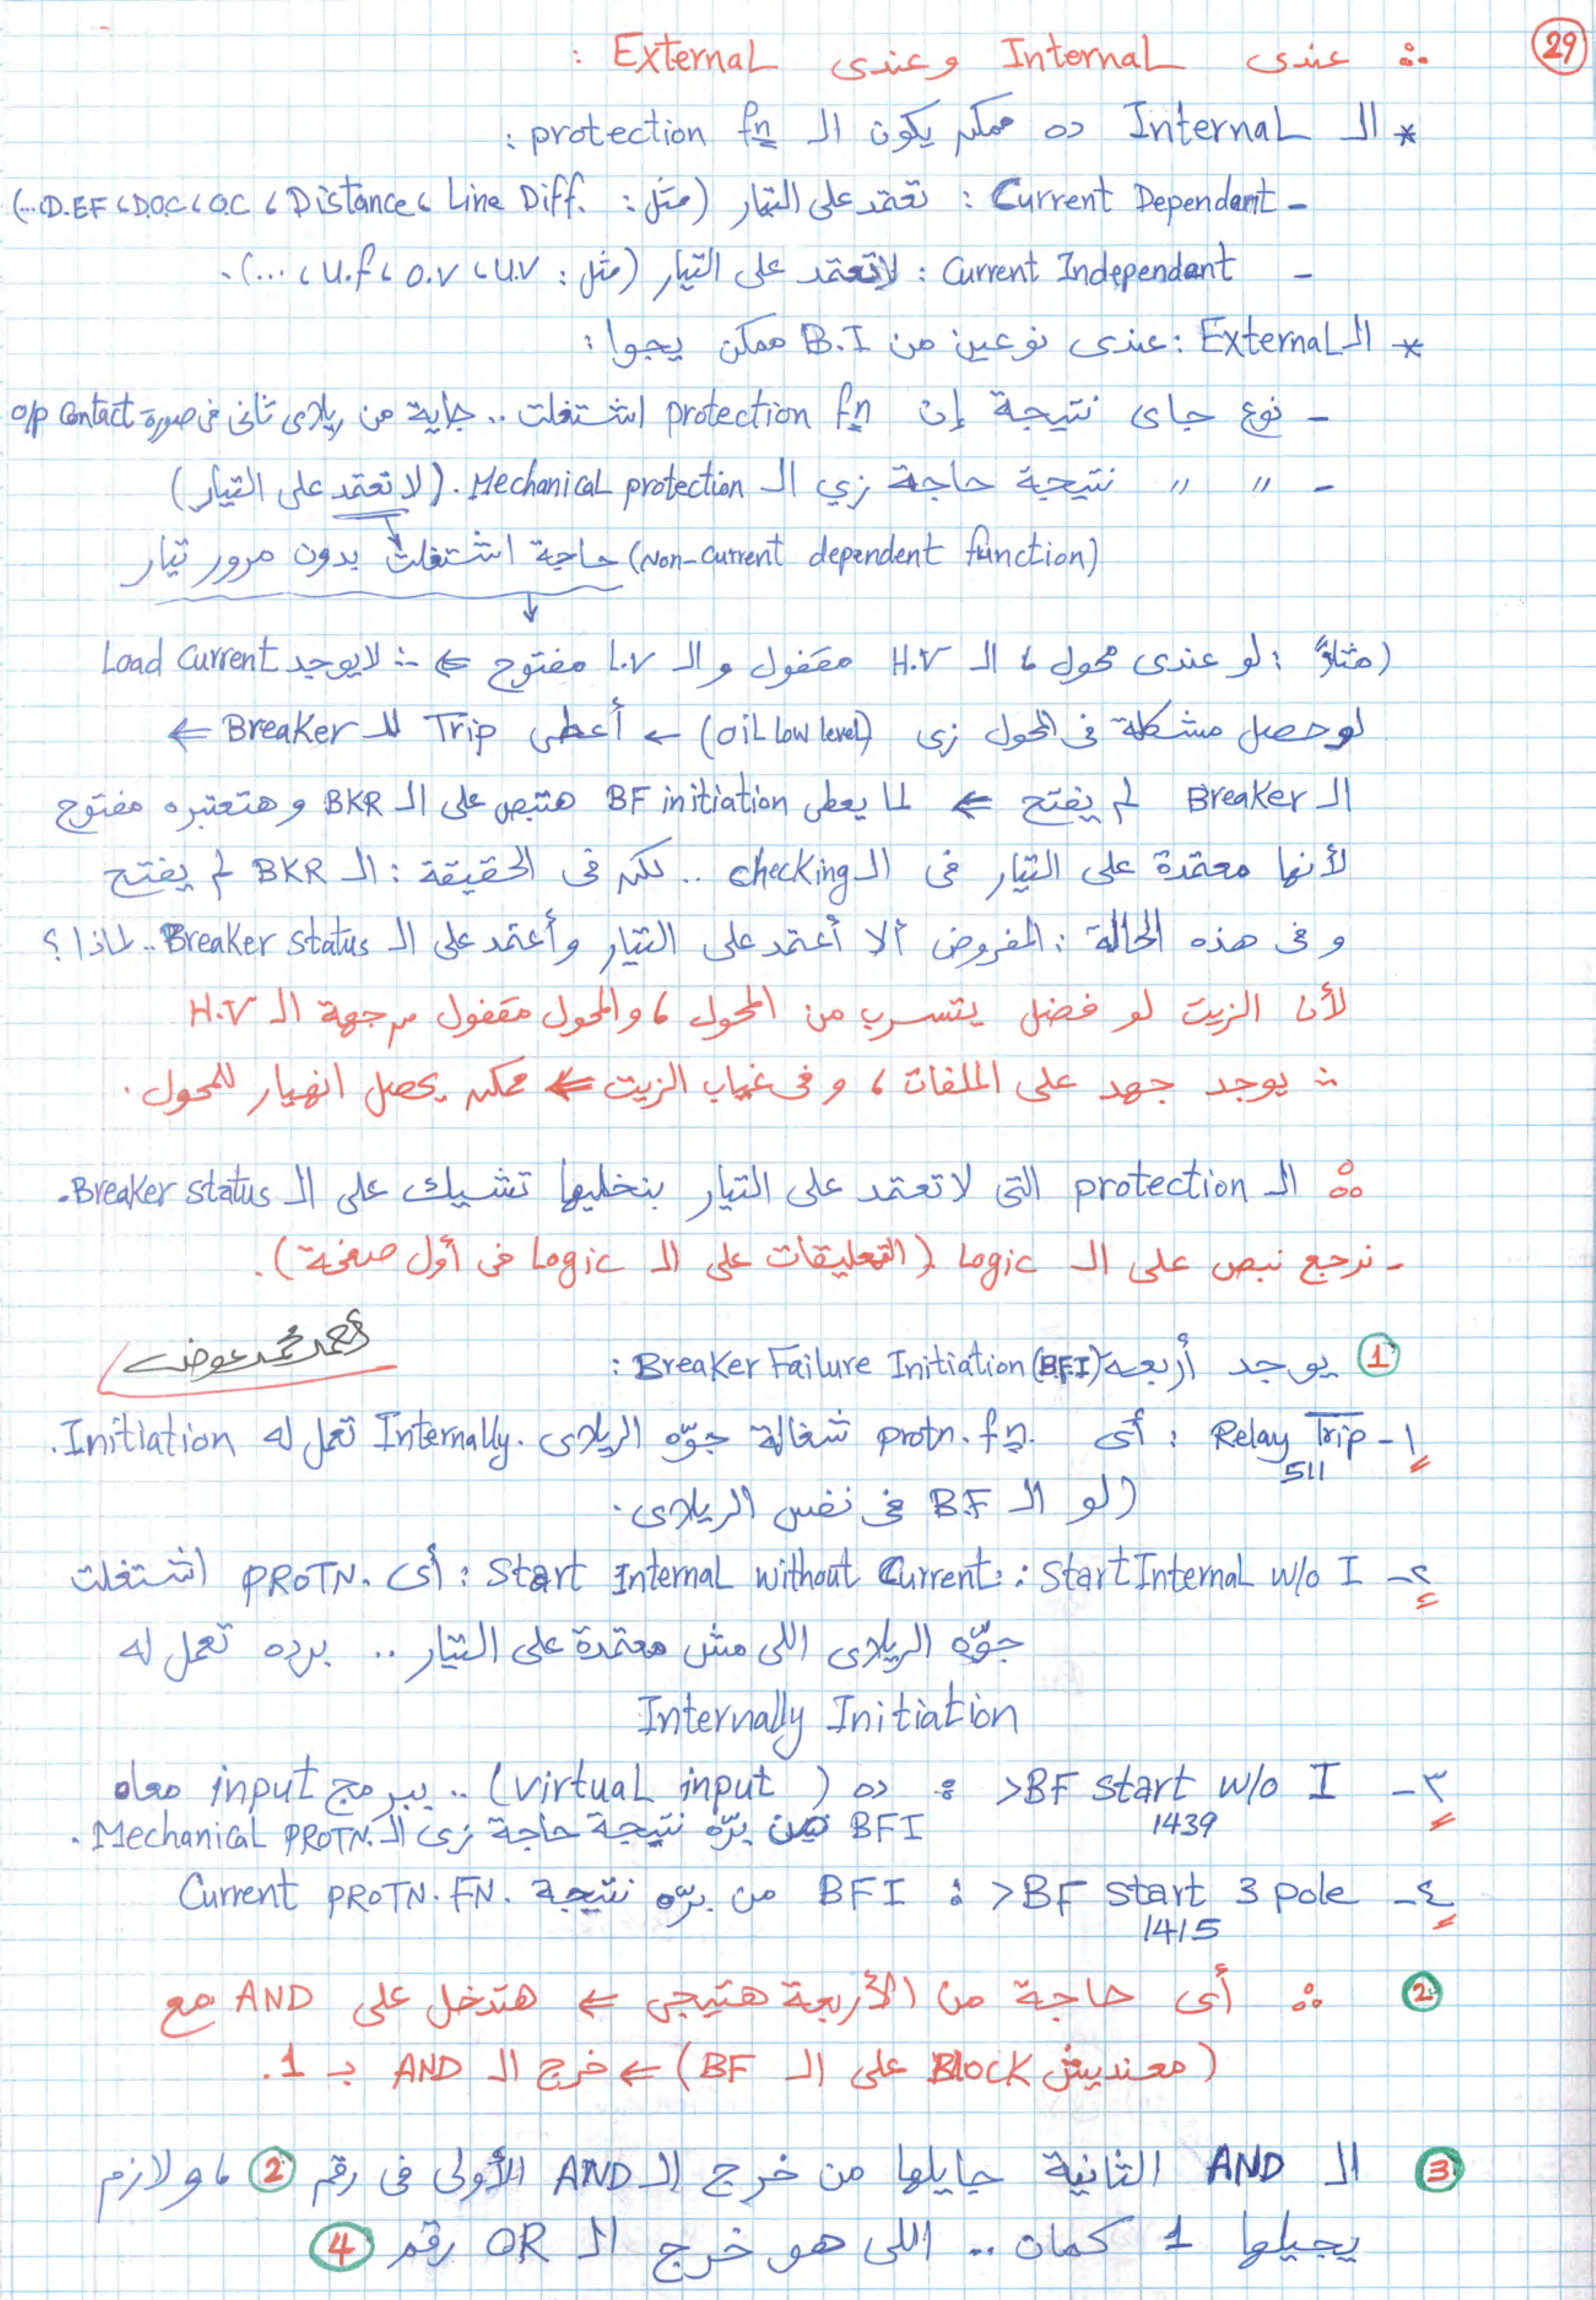 29
∴ عندى Internal وعندى External :
* الـ Internal ده ممكن يكون الـ protection fn :
- Current Dependent : تعتمد على التيار (مثل : Line Diff. ، Distance ، O.C ، D.O.C ، D.EF ...)
- Current Independent : لا تعتمد على التيار (مثل : U.V ، O.V ، U.f ، ...).
* الـ External : عندى نوعين من B.I ممكن يجوا :
- نوع جاى نتيجة إن protection fn اشتغلت .. جاية من ريلاى تانى فى صورة o/p contact
- " " نتيجة حاجة زي الـ Mechanical protection . (لا تعتمد على التيار)
(Non-current dependent function) حاجة اشتغلت بدون مرور تيار
(مثلاً : لو عندى محول ، الـ H.V مقفول و الـ L.V مفتوح ⇐ ∴ لا يوجد Load current
لو حصل مشكلة فى المحول زى (oil low level) ← أعطى Trip للـ Breaker ⇐
الـ Breaker لم يفتح ⇐ لما يعطى BF initiation هتبص على الـ BKR وهتعتبره مفتوح
لأنها معتمدة على التيار فى الـ checking .. لكن فى الحقيقة : الـ BKR لم يفتح
و فى هذه الحالة : المفروض ألا أعتمد على التيار وأعتمد على الـ Breaker status .. لماذا ؟
لأن الزيت لو فضل يتسرب من المحول ، والمحول مقفول من جهة الـ H.V
∴ يوجد جهد على الملفات ، و فى غياب الزيت ⇐ ممكن يحصل انهيار للمحول .
∴ الـ protection التى لا تعتمد على التيار بنخليها تشيك على الـ Breaker status.
- نرجع نبص على الـ Logic (التعليقات على الـ Logic فى أول صفحة).
أحمد محمد عوض
① يوجد أربعة Breaker Failure Initiation (B.F.I) :
١- Relay Trip : أى protn. fn. شغالة جوّه الريلاى Internally. تعمل له Initiation.
511
(لو الـ B.F فى نفس الريلاى .
٢- Start Internal w/o I : Start Internal without Current : أى PROTN. اشتغلت
جوّه الريلاى اللى مش معتمدة على التيار .. برده تعمل له
Internally Initiation
٣- >BF start w/o I : ده (virtual input) .. يبرمج input معاه
1439
BFI من برّه نتيجة حاجة زى الـ Mechanical PROTN.
٤- >BF start 3 pole : BFI من برّه نتيجة Current PROTN. FN.
1415
② ∴ أى حاجة من الأربعة هتيجى ⇐ هتدخل على AND مع
(معنديش Block على الـ BF) ⇐ خرج الـ AND بـ 1.
③ الـ AND الثانية جايلها من خرج الـ AND الأولى فى رقم ② ، و لازم
يجيلها 1 كمان .. اللى هو خرج الـ OR رقم ④